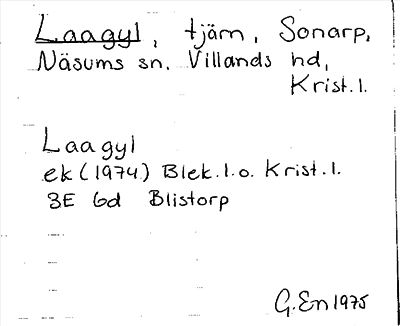 Laagyl, tjärn, Sonarp,
Näsums sn. Villands hd,
Krist. l.
Laagyl
ek (1974) Blek. l. o. Krist. l.
3E 6d Blistorp
G. En 1975